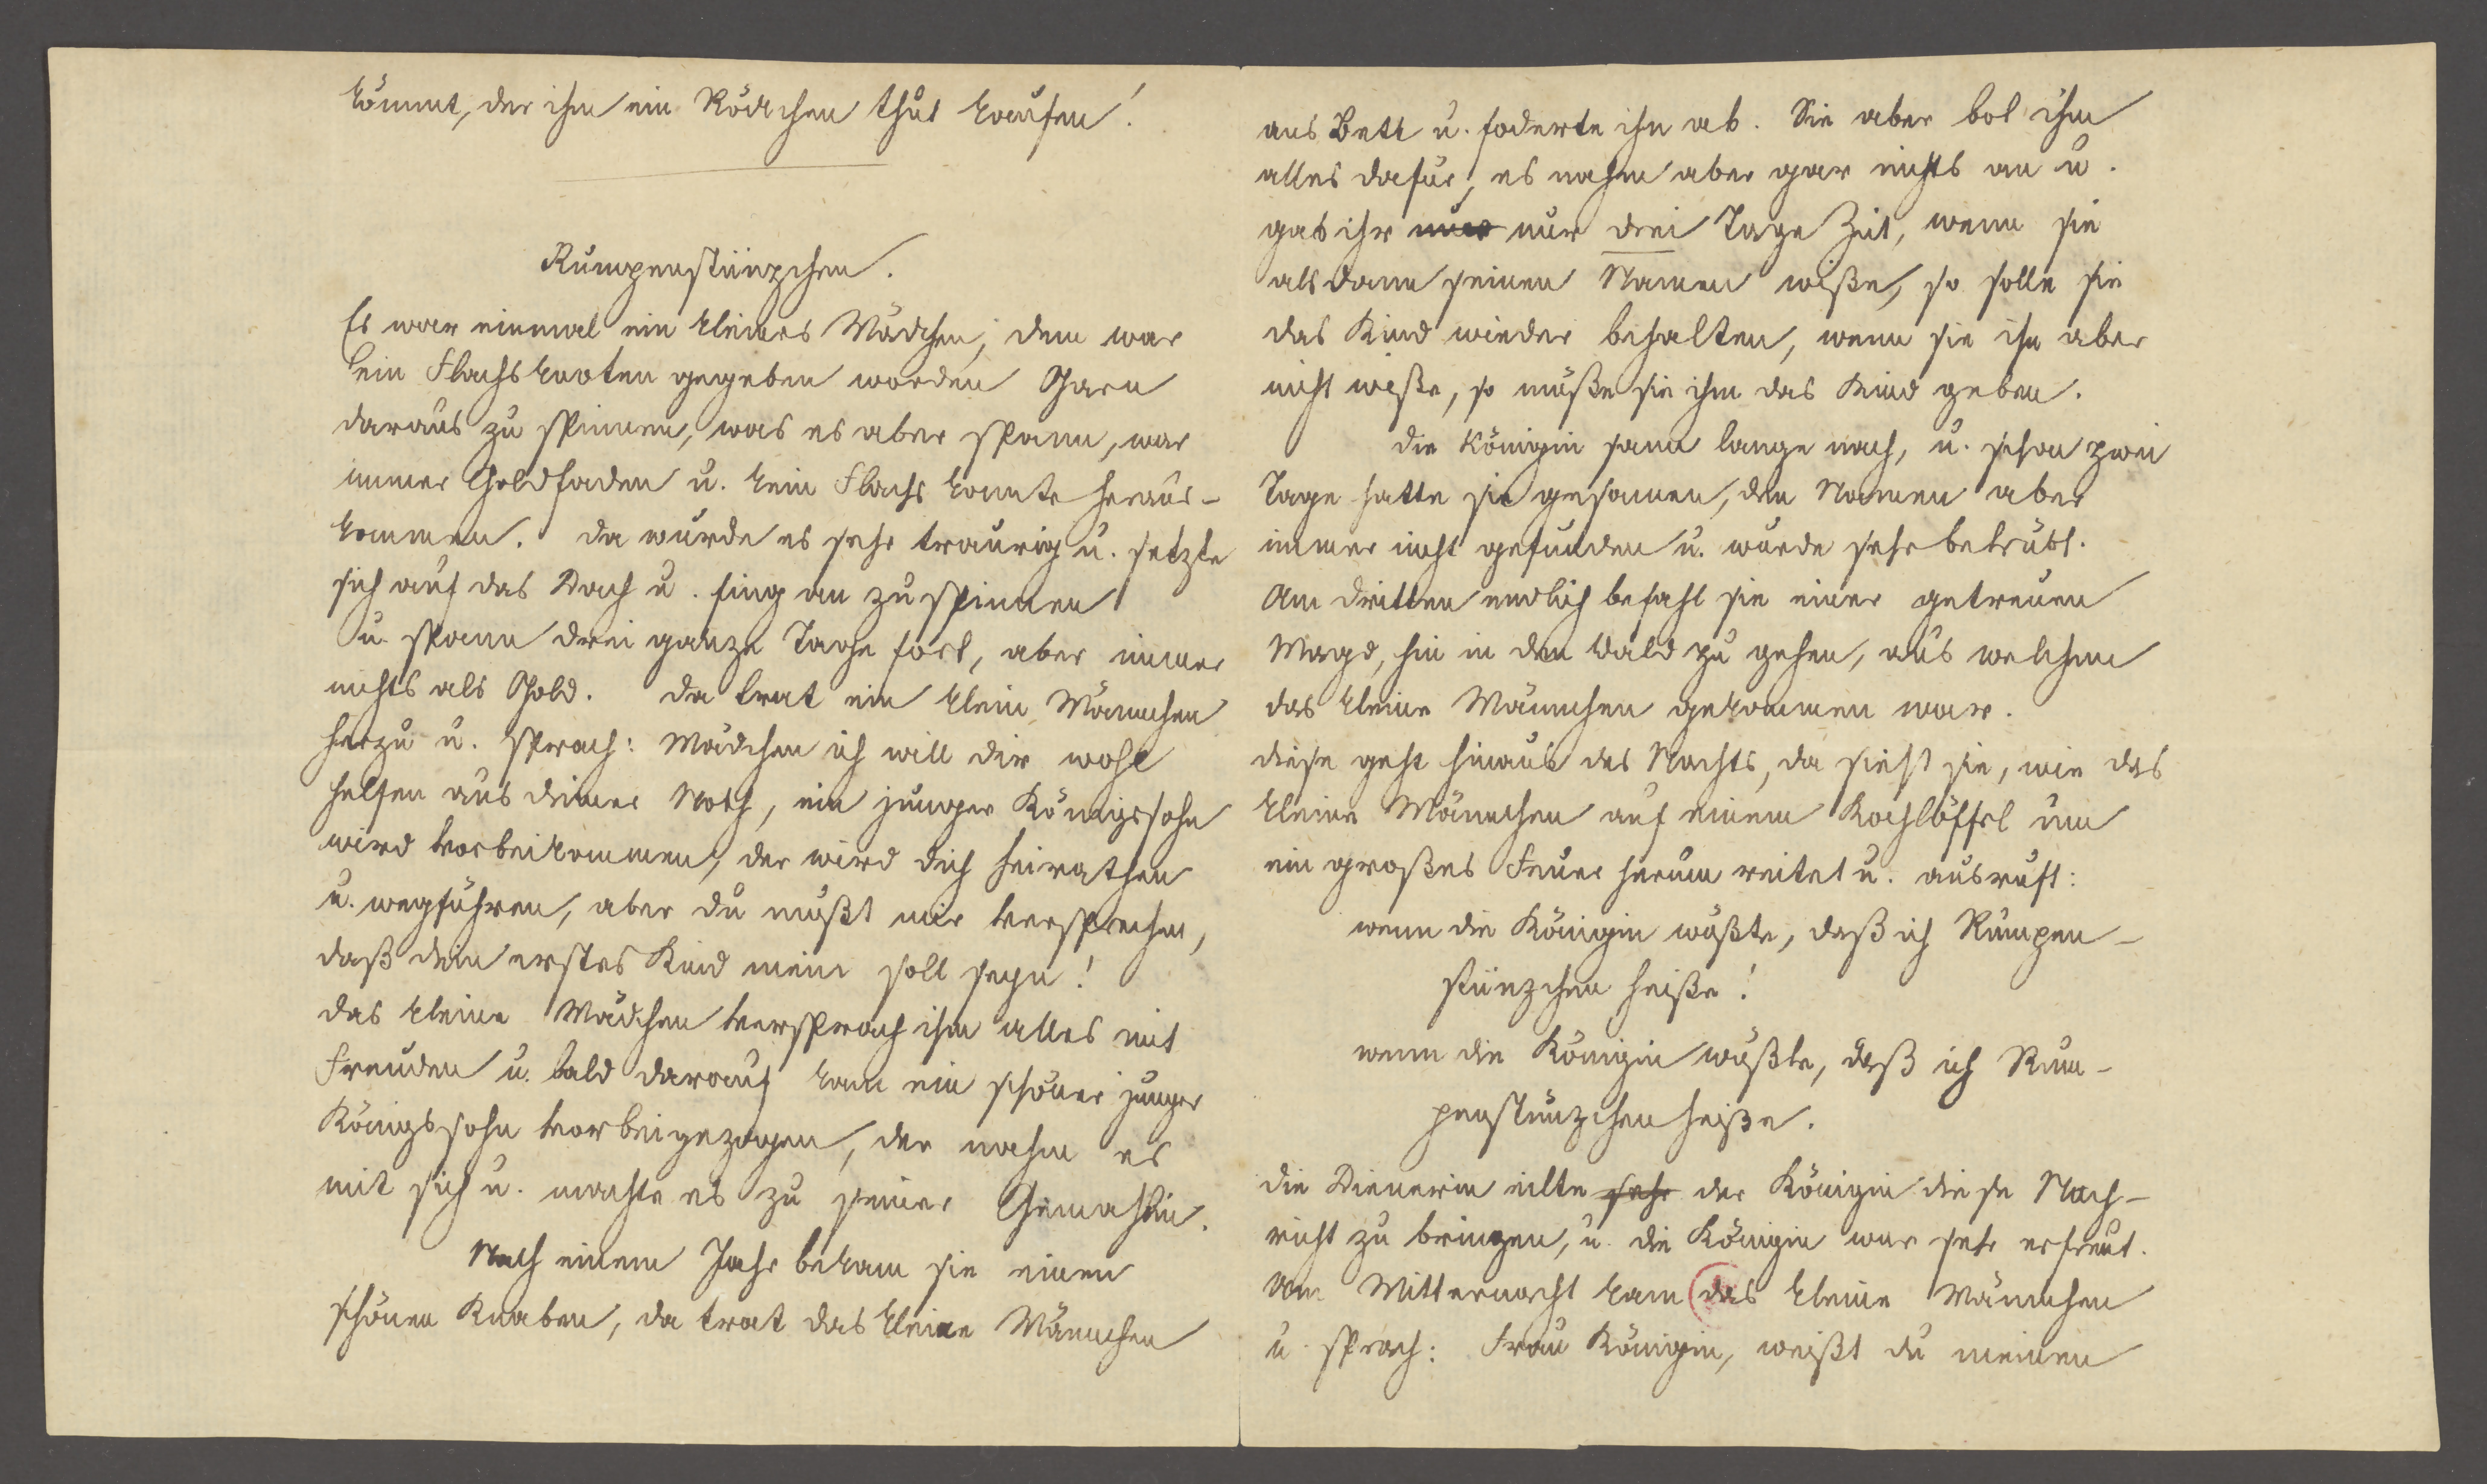 kömmt, der ihm ein Röckchen thut kaufen!
Rumpenstünzchen.
Es war einmal ein kleines Mädchen, dem war
ein Flachsknoten gegeben worden Garn
daraus zu spinnen, was es aber spann, war
immer Goldfaden u. kein Flachs konnte heraus-
kommen. da wurde es sehr traurig u. setzte
sich auf das Dach u. fing an zu spinnen
u. spann drei ganze Tage fort, aber immer
nichts als Gold. da trat ein klein Männchen
herzu u. sprach: Mädchen ich will dir wohl
helfen aus deiner Noth, ein junger Königssohn
wird vorbeikommen, der wird dich heirathen
u. wegführen, aber du mußt mir versprechen,
daß dein erstes Kind mein soll seyn!
das kleine Mädchen versprach ihm alles mit
Freuden u. bald darauf kam ein schöner junger
Königssohn vorbeigezogen, der nahm es
mit sich u. machte es zu seiner Gemahlin.
Nach einem Jahr bekam sie einen
schönen Knaben, da trat das kleine Männchen
ans Bett u. foderte ihn ab. Sie aber bot ihm
alles dafür, es nahm aber gar nichts an u.
gab ihr nur nur drei Tage Zeit, wenn sie
alsdann seinen Namen wiße, so solle sie
das Kind wieder behalten, wenn sie ihn aber
nicht wiße, so müße sie ihm das Kind geben.
die Königin sann lange nach, u. schon zwei
Tage hatte sie gesonnen, den Namen aber
immer nicht gefunden u. wurde sehr betrübt.
Am dritten endlich befahl sie einer getreuen
Magd, hin in den Wald zu gehen, aus welchem
das kleine Männchen gekommen war.
diese geht hinaus des Nachts, da sieht sie, wie das
kleine Männchen auf einem Kochlöffel um
ein großes Feuer herum reitet u. ausruft:
wenn die Königin wüßte, daß ich Rumpen-
stünzchen heiße!
wenn die Königin wüßte, daß ich Rum-
penstünzchen heiße.
die Dienerin eilte sehr der Königin diese Nach-
richt zu bringen, u. die Königin war sehr erfreut.
Um Mitternacht kam das kleine Männchen
u. sprach: Frau Königin, weißt du meinen